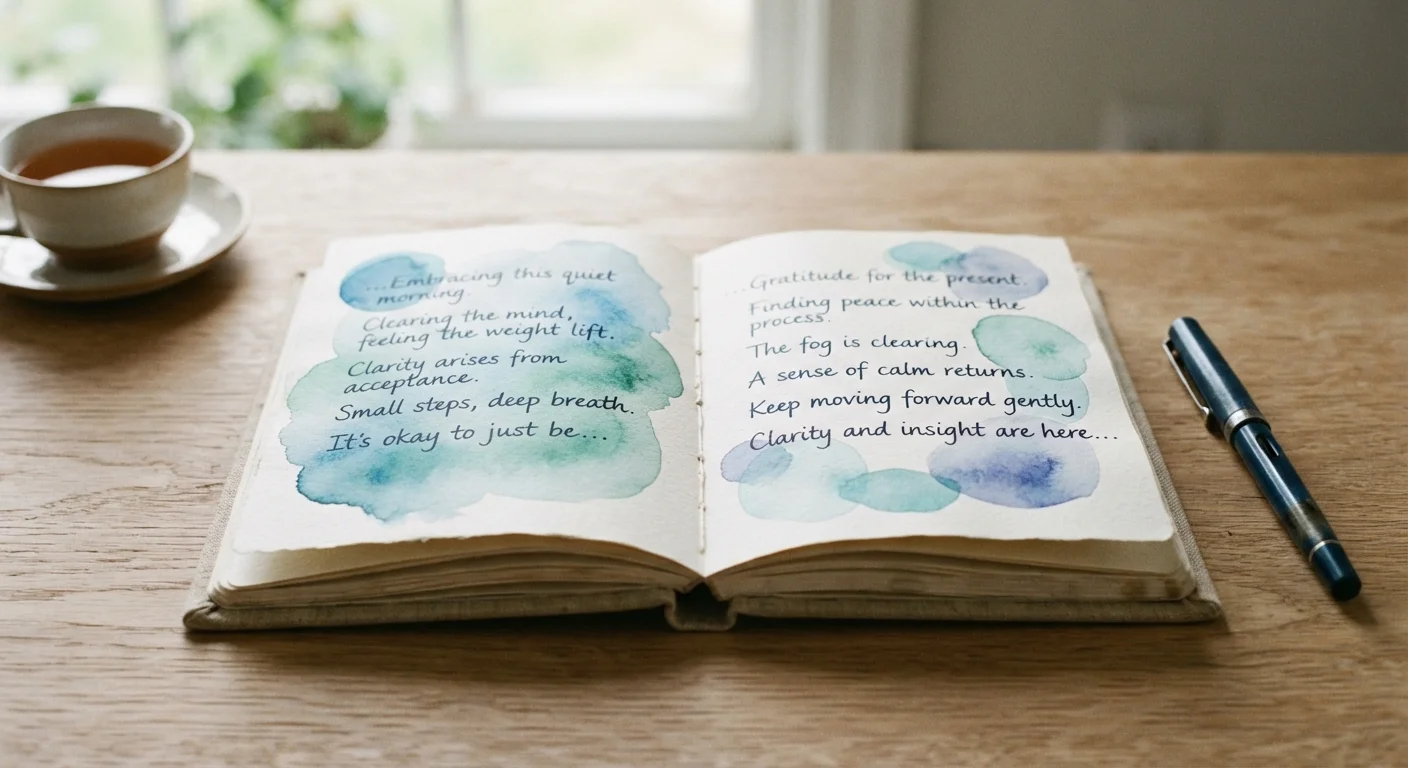 ...Embracing this quiet
morning.
Clearing the mind,
feeling the weight lift.
Clarity arises from
acceptance.
Small steps, deep breath.
It's okay to just be...
...Gratitude for the present.
Finding peace within the
process.
The fog is clearing.
A sense of calm returns.
Keep moving forward gently.
Clarity and insight are here...